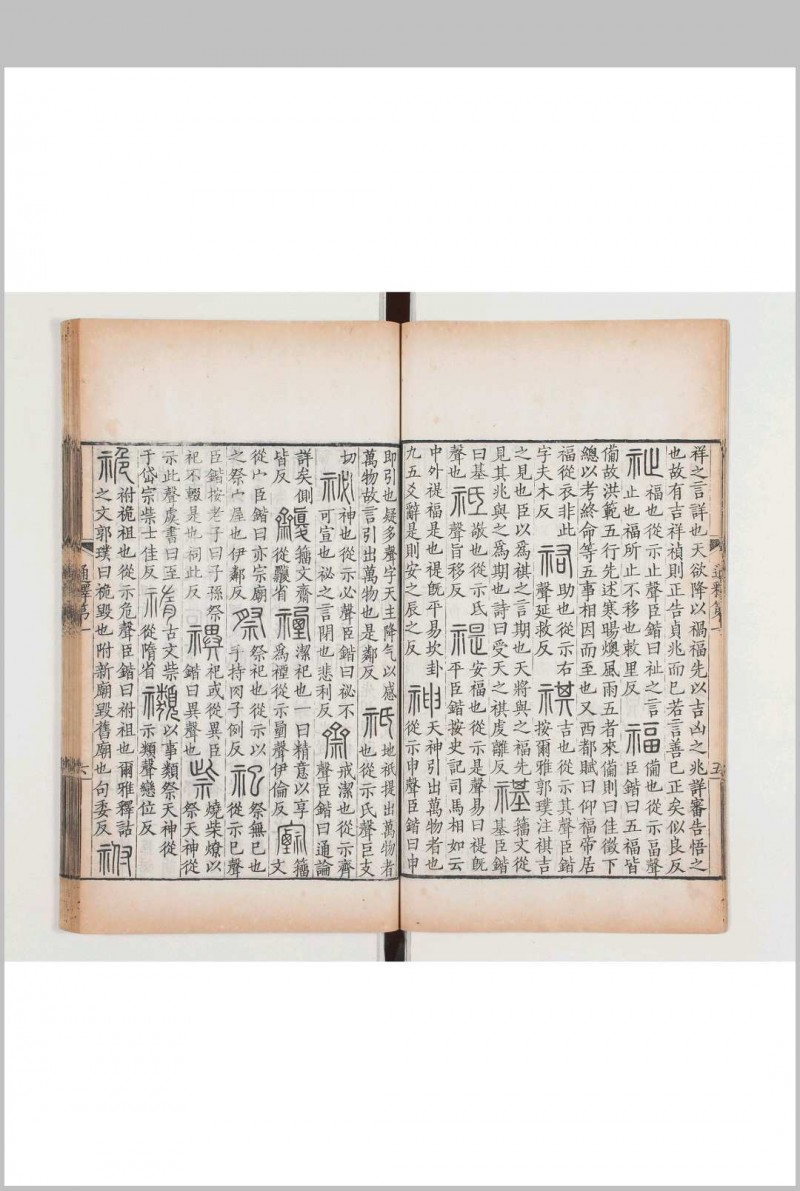 祥之言詳也天欲降以禍福先以吉凶之兆詳審告悟之
也故有吉祥禎則正告貞兆而已若言善已正矣似良反
祉福也從示止聲臣鍇曰祉之言福備也從示畐聲
止也福所止不移也敕里反臣鍇曰五福皆
備故洪範五行先述寒暘燠風雨五者來備則曰佳徵下
總以考終命等五事相因而至也又西都賦曰仰福帝居
福從衣非此祐助也從示右祺吉也從示其聲臣鍇
字夫木反聲延救反按爾雅郭璞注祺吉
之見也臣以爲祺之言期也天將與之福先禥籒文從
見其兆與之爲期也詩曰受天之祺虔離反基臣鍇
曰基祗敬也從示氐禔安福也從示是聲易曰禔旣
聲也聲旨移反平臣鍇按史記司馬相如云
中外禔福是也禔旣平易坎卦神天神引出萬物者也
九五爻辭是則安之辰之反從示申聲臣鍇曰申
即引也疑多聲字天主降气以感祇地祇提出萬物者
萬物故言引出萬物也是鄰反也從示氏聲巨支
切祕神也從示必聲臣鍇曰祕不齋戒潔也從示齊
可宣也祕之言閉也悲利反聲臣鍇曰通論
詳矣側籒文齋禋潔祀也一曰精意以享籒
皆反從省爲禋從示垔聲伊倫反文
從宀臣鍇曰亦宗廟祭祭祀也從示以祀祭無巳也
之祭宀屋也伊鄰反手持肉子例反從示巳聲
臣鍇按老子曰子孫祭禩祀或從異臣祡燒柴燎以
祀不輟是也祠此反鍇曰異聲也祭天神從
示此聲虞書曰至古文祡禷以事類祭天神從
于岱宗祡士佳反從隋省示類聲戀位反
祪祔祪祖也從示危聲臣鍇曰祔祖也爾雅釋詁祔
之文郭璞曰祪毀也附新廟毀舊廟也句委反
通釋第一
六
通釋第一
五